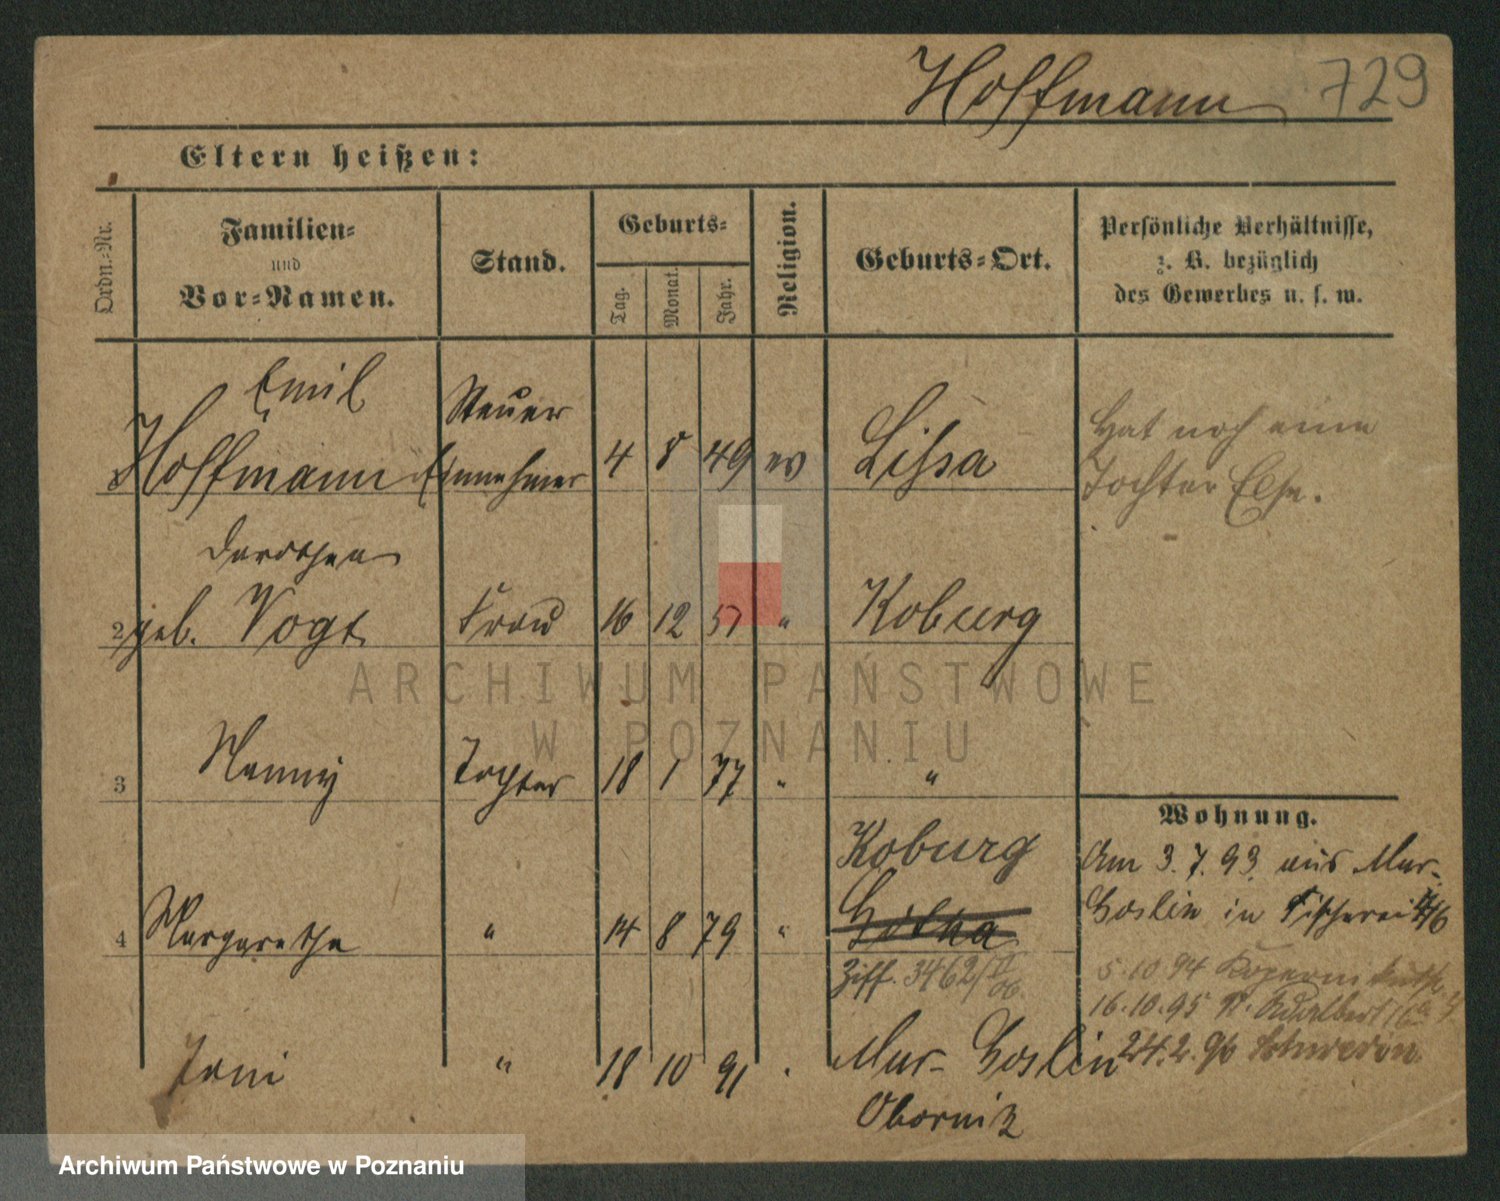 Hoffmann 729
Eltern heißen:
Ordn.-Nr.
Familien-
und
Vor-Namen.
Stand.
Geburts-
Tag.
Monat.
Jahr.
Religion.
Geburts-Ort.
Persönliche Verhältnisse,
z. B. bezüglich
des Gewerbes u. s. w.
Emil
Hoffmann
Steuer
Einnehmer
4 8 49 ev
Lissa
Hat noch eine
Tochter Else.
Dorothea
2 geb. Vogt
Frau
16 12 57 "
Koburg
3 Nanny
Tochter
18 1 77 "
"
4 Margarethe
"
14 8 79 "
Koburg
Gotha
Ziff. 3462/
06.
Toni
"
18 10 91 "
Mur-Goslin
Obornik
Wohnung.
Am 3.7.93 aus Mur-
Goslin in Fischerei 4/6
5.10.94
16.10.95 St. Adalbert 16a
24.2.96 Schwerin
ARCHIWUM PAŃSTWOWE
W POZNANIU
Archiwum Państwowe w Poznaniu